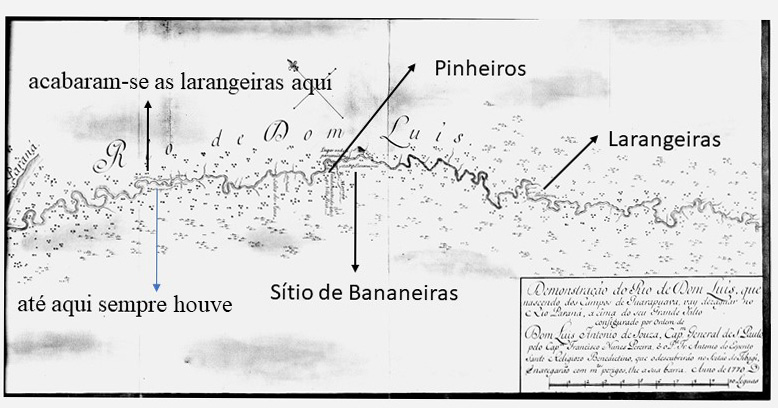 acabaram-se as larangeiras aqui
Pinheiros
Rio de Dom Luis
Larangeiras
Paraná
até aqui sempre houve
Sítio de Bananeiras
Demonstração do Rio de Dom Luis, que
nascendo dos Campos de Guarapuava, vay dezagoar no
Rio Paraná, a cima do seu Grande Salto
configurado por ordem de
Dom Luis Antonio de Souza, Capm. General de S. Paulo
pelo Capm. Francisco Nunes Pereira, & o Pe. Fr. Antonio do Espirito
Santo Religiozo Benedictino, que o descubrirão no Sertão do Tibagi,
& navegarão com ms. perigos, the a sua barra. Anno de 1770
Legoas